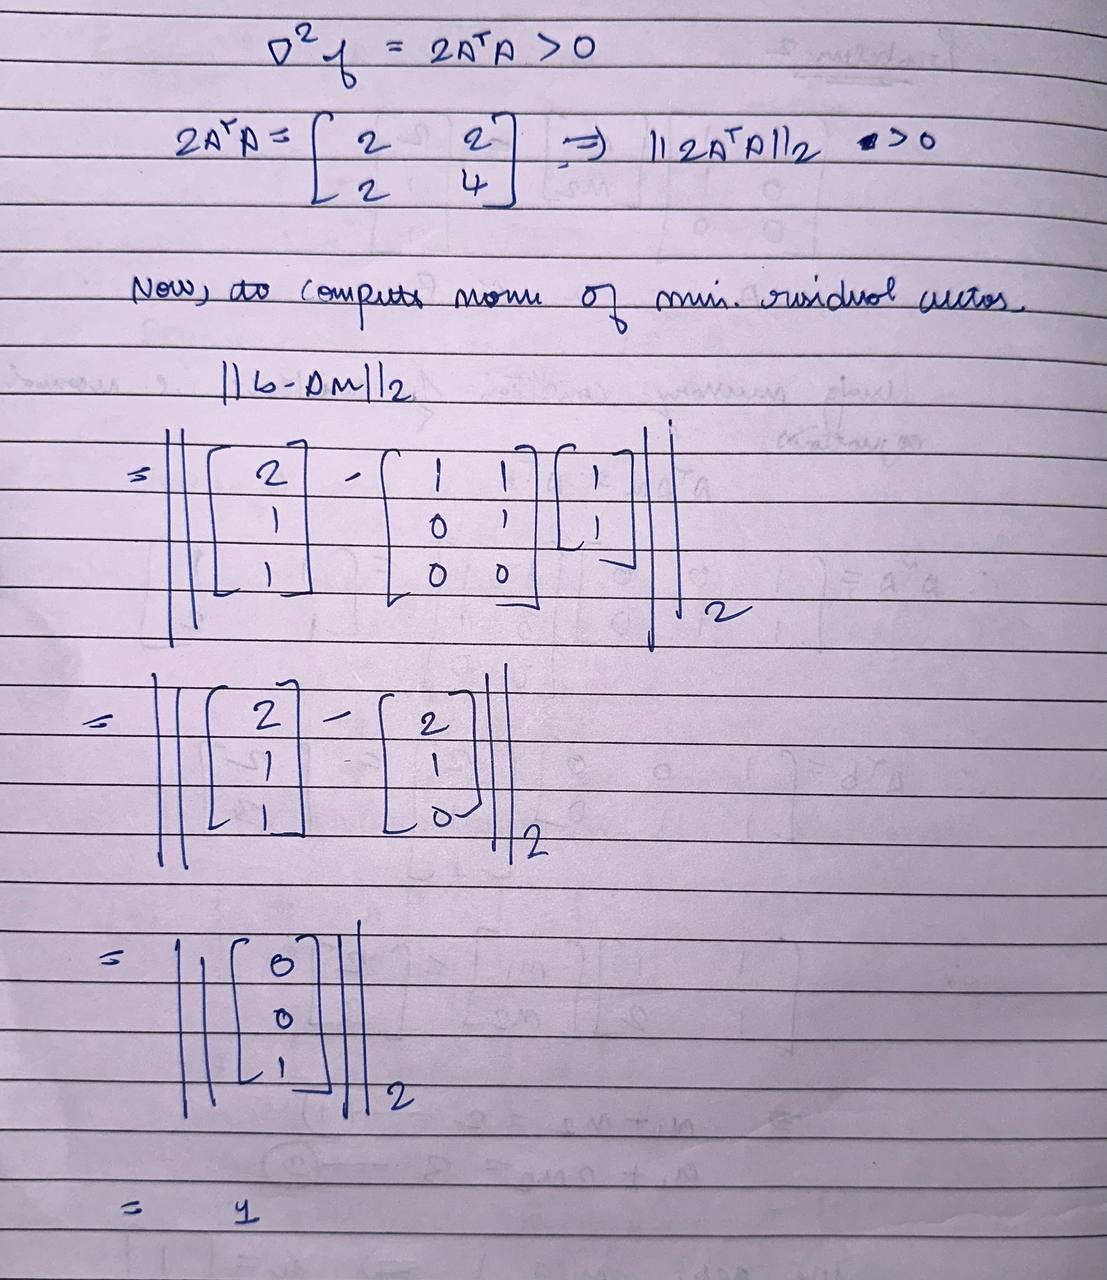 ∇²f = 2AᵀA > 0
2AᵀA = [2 2; 2 4] ⇒ ||2AᵀA||₂ > 0
Now, to compute norm of min. residual vector.
||b-Ax||₂
= || [2; 1; 1] - [1 1; 0 1; 0 0] [1; 1] ||₂
= || [2; 1; 1] - [2; 1; 0] ||₂
= || [0; 0; 1] ||₂
= 1